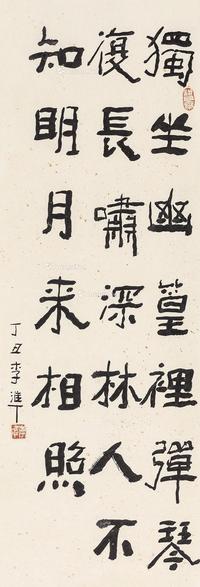 獨坐幽篁裡彈琴
復長嘯深林人不
知明月来相照
丁丑李淮